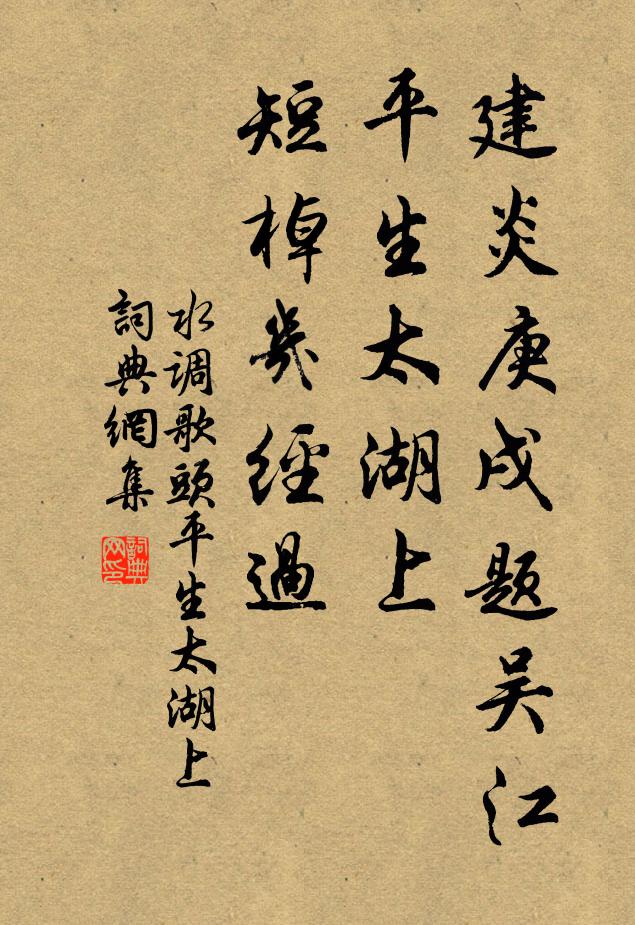 建炎庚戌题吴江
平生太湖上
短棹幾經過
水调歌頭平生太湖上
詞典網集
詞典
网印